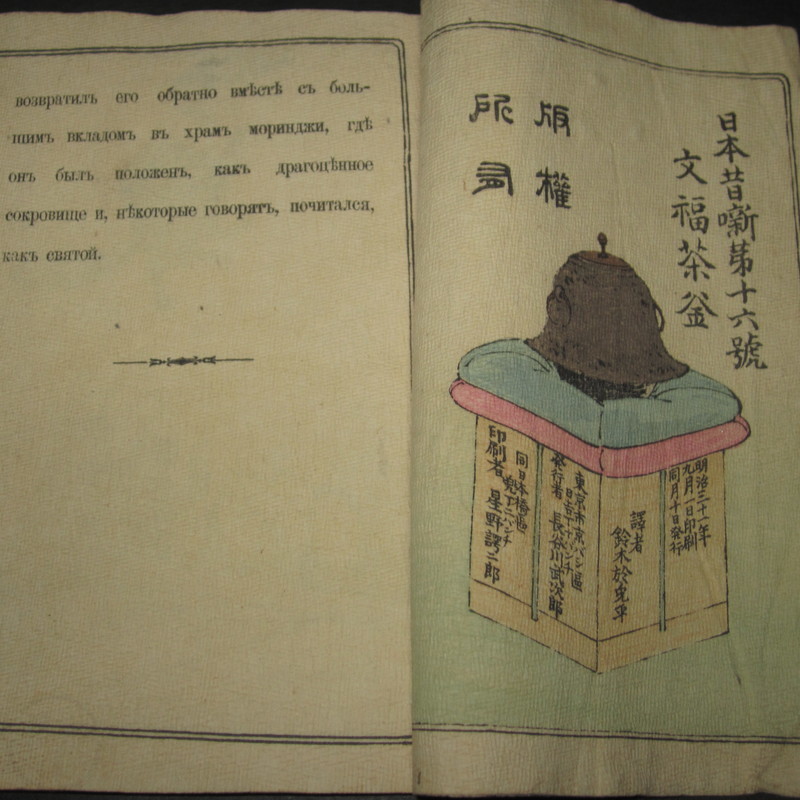 возвратилъ его обратно вмѣстѣ съ боль-
шимъ вкладомъ въ храмъ моринджи, гдѣ
онъ былъ положенъ, какъ драгоцѣнное
сокровище и, нѣкоторые говорятъ, почитался,
какъ святой.
日本昔噺第十六號
文福茶釜
版權
所有
明治三十一年
九月一日印刷
同月十日発行
譯者
鈴木於兎平
東京市京バシ區
日吉丁十バンチ
発行者 長谷川武次郎
同日本橋區
兜丁二バンチ
印刷者 星野錫